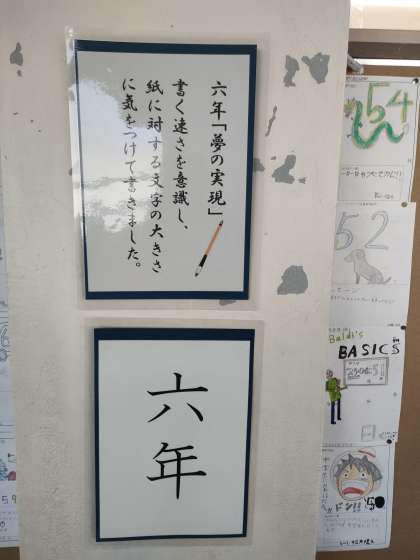 六年「夢の実現」
書く速さを意識し、
紙に対する文字の大きさ
に気をつけて書きました。
六年
54
52
Baldi's
BASICS